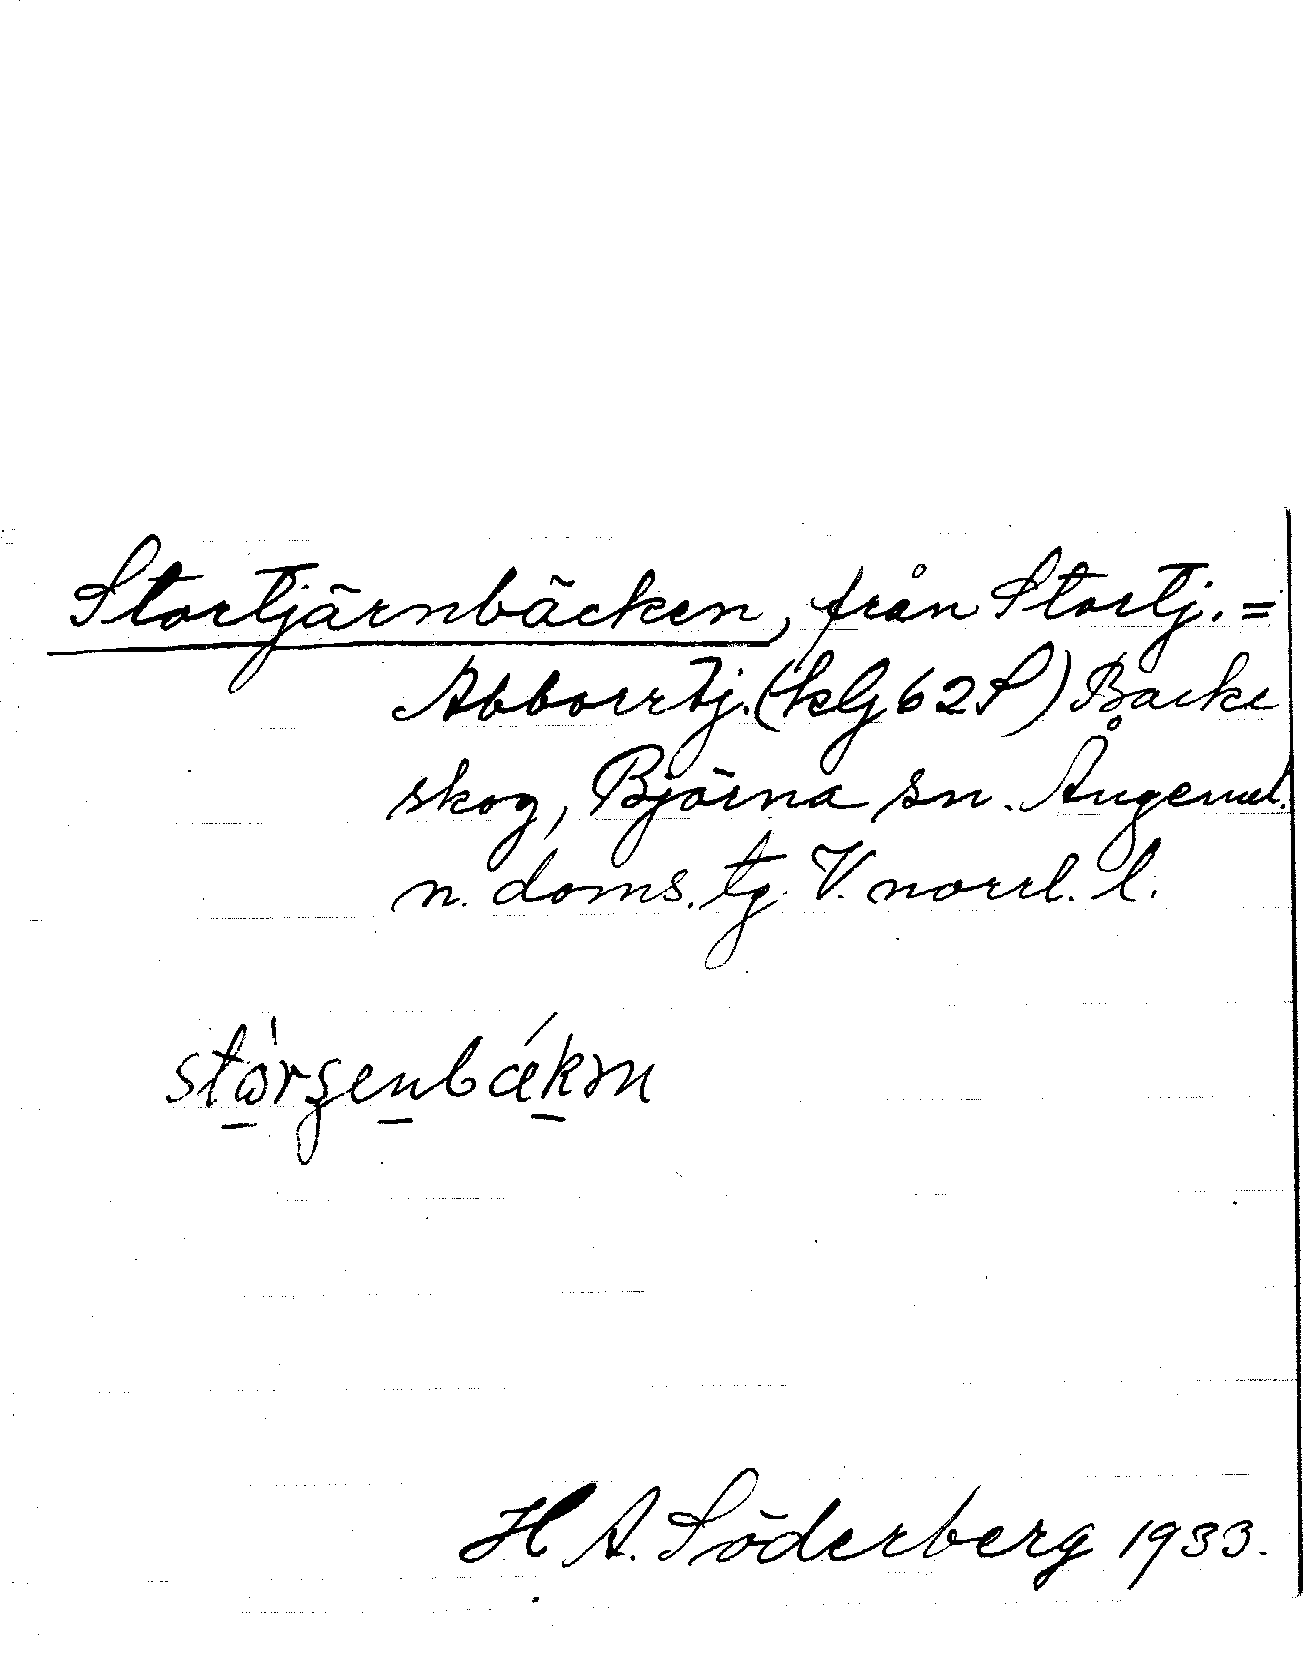 Stortjärnbäcken, från Stortj. =
Abborrtj. (klg 62S) Backe
skog, Björna sn. Ångerml.
n. doms. tg V. norrl. l.
H A. Söderberg 1933.